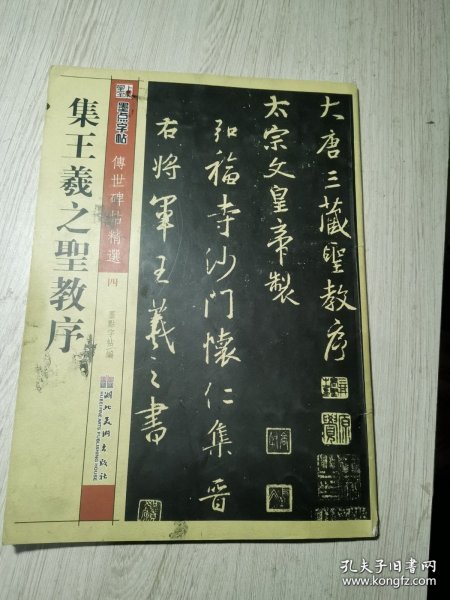 墨点字帖
傳世碑帖精選
四
墨點字帖編
湖北美术出版社
HUBEI FINE ARTS PUBLISHING HOUSE
集王羲之聖教序
大唐三藏聖教序
太宗文皇帝製
弘福寺沙門懷仁集晋
右將軍王羲之書
孔夫子旧书网
www.kongfz.com